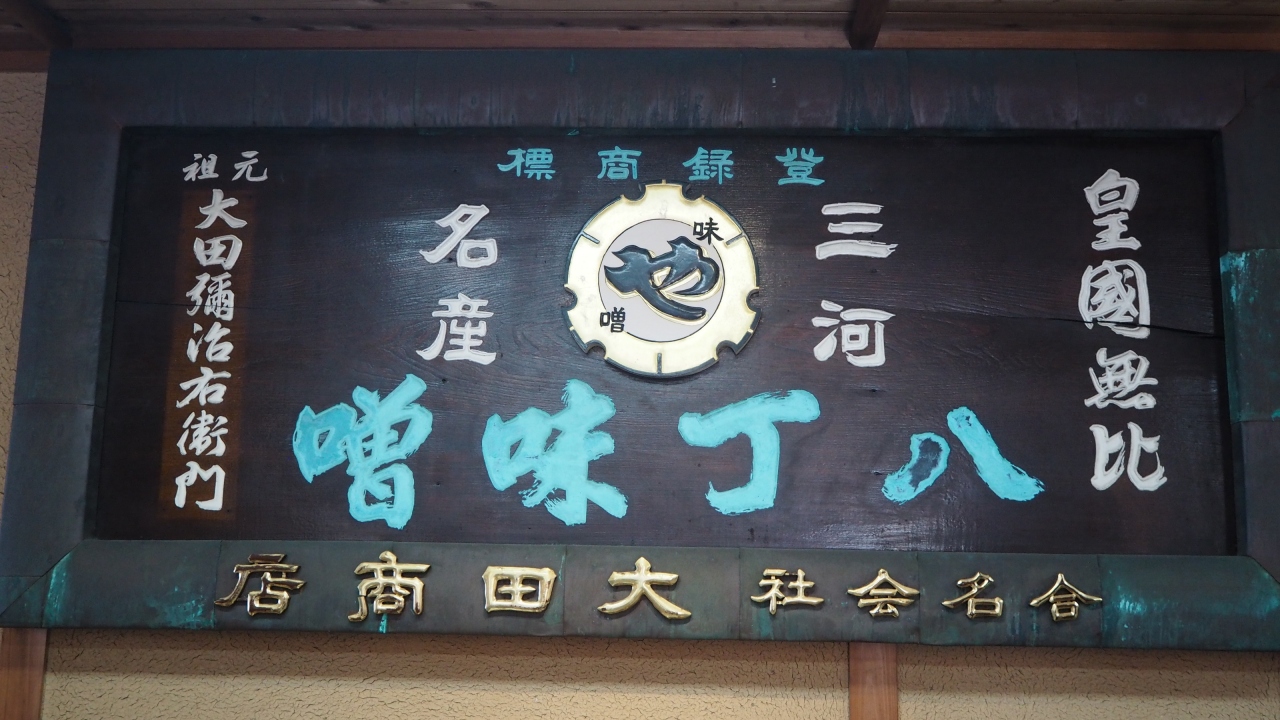 皇國無比
登録商標
三河
名産
味
地
噌
八丁味噌
元祖
大田彌治右衛門
合名会社大田商店